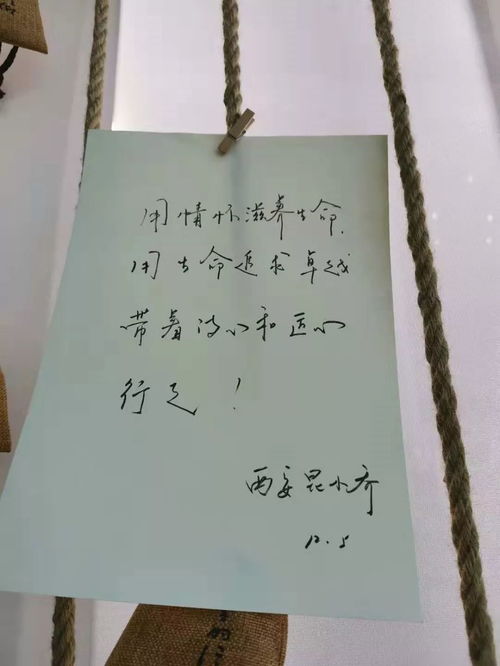 用情怀滋养生命,
用生命追求卓越
带着诗心和匠心
行走!
西安昆小乔
12.5